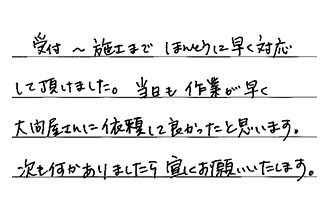 受付～施工まで ほんとうに早く対応
して頂けました。当日も作業が早く
大問屋さんに依頼して良かったと思います。
次も何かありましたら宜しくお願いいたします。